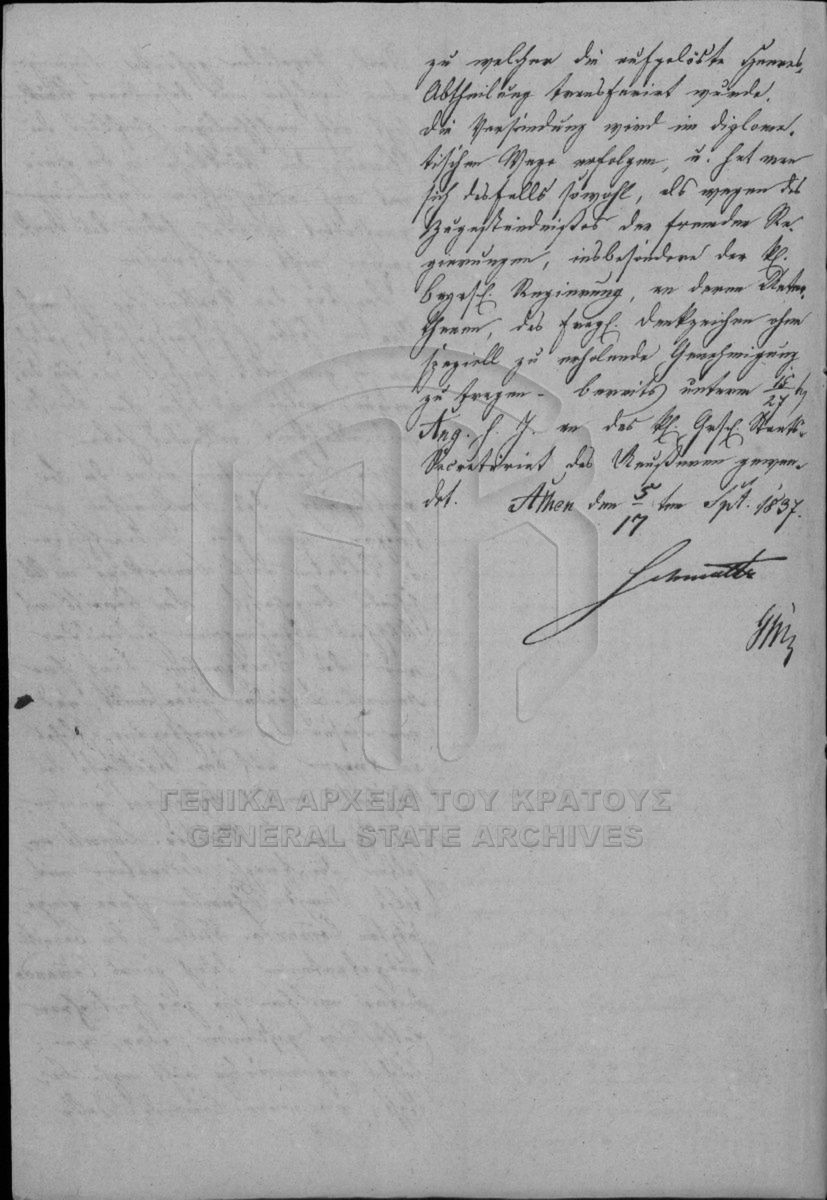 zu welcher die aufgelöste Heeres-
Abtheilung transferirt wurde.
Die Versendung wird im diploma-
tischen Wege erfolgen, u. hat man
sich desfalls sowohl, als wegen des
Zugeständnißes der fremden Re-
gierungen, insbesondere der kl.
bayersch. Regierung, an deren Unter-
thanen, das fragl. Denkzeichen ohne
speziell zu erholende Genehmigung
zu tragen - bereits unterm 15/27
Aug. h. J. an das kl. Gesch. Staats-
Secretariat des Aeußeren gewen-
det. Athen den 5/17 ten Spt. 1837.
Schmaltz
ΓΕΝΙΚΑ ΑΡΧΕΙΑ ΤΟΥ ΚΡΑΤΟΥΣ
GENERAL STATE ARCHIVES